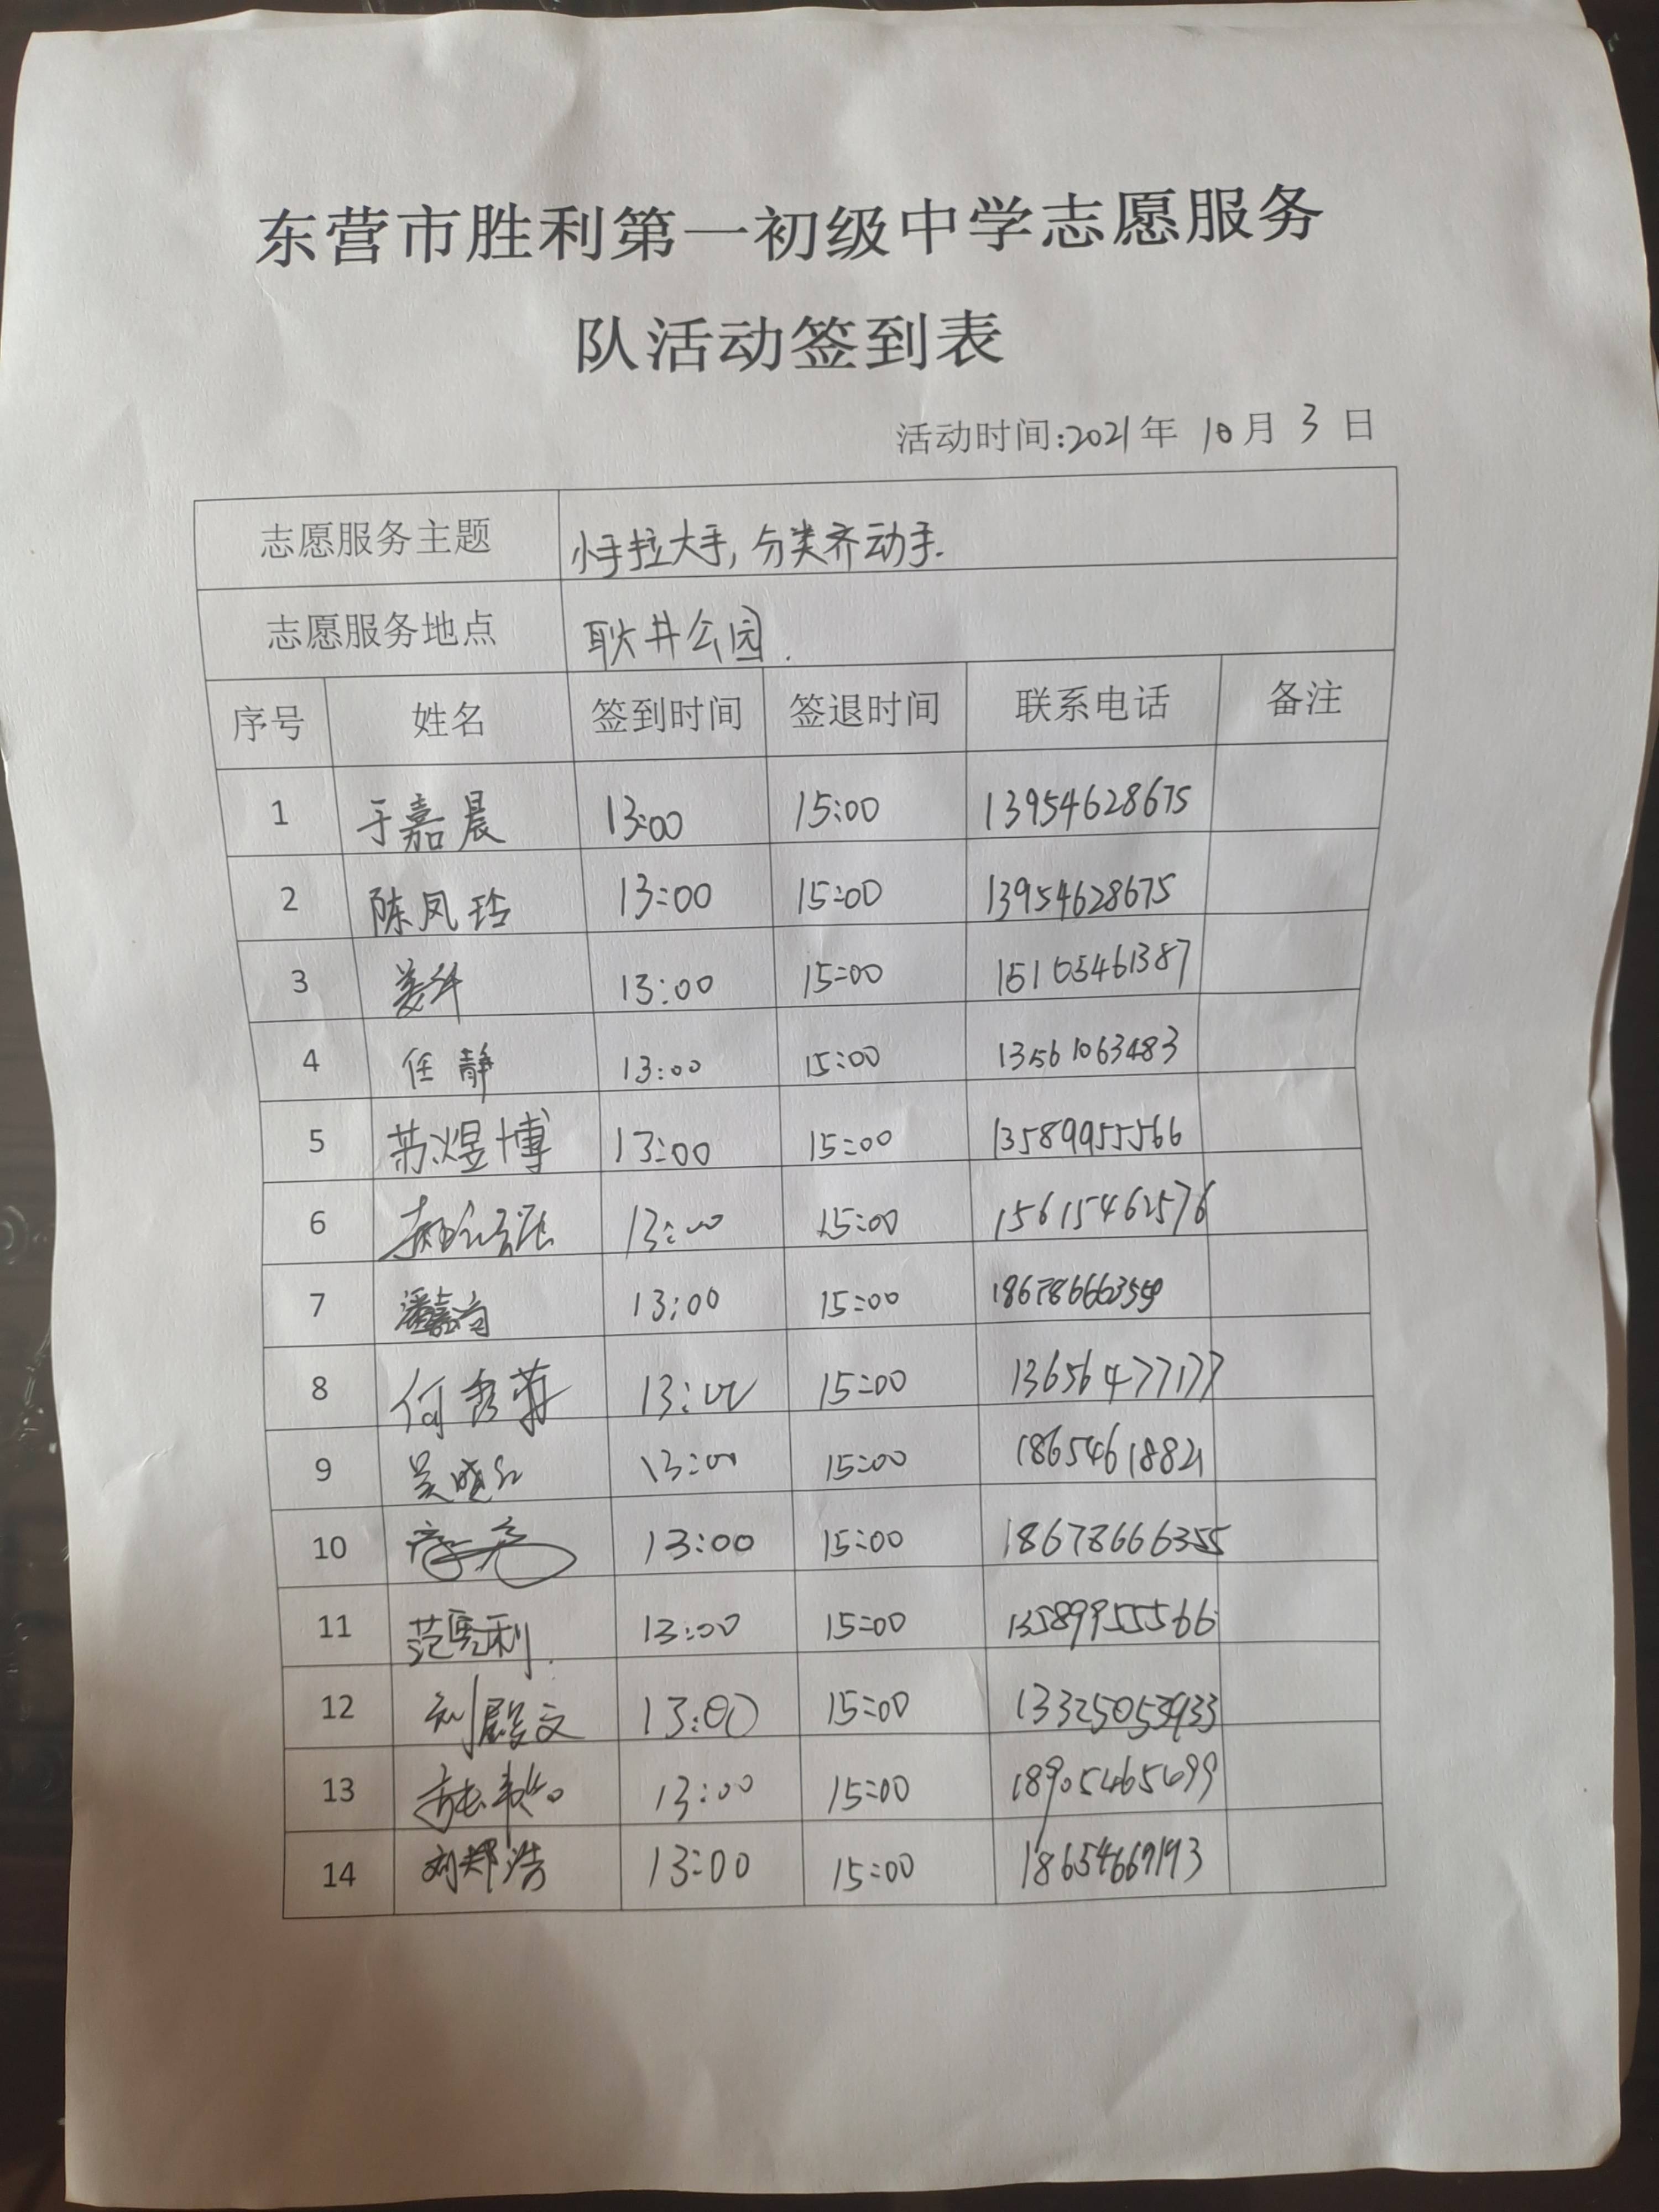 东营市胜利第一初级中学志愿服务
队活动签到表
活动时间:2021年 10月 3 日
志愿服务主题 小手拉大手,分类齐动手.
志愿服务地点 耿井公园.
序号 姓名 签到时间 签退时间 联系电话 备注
1 于嘉晨 13:00 15:00 13954628675
2 陈凤玲 13:00 15:00 13954628675
3 13:00 15:00 15105461387
4 任静 13:00 15:00 13561063483
5 苏煜博 13:00 15:00 13589955566
6 13:00 15:00 15615462576
7 13:00 15:00
8 何秀菊 13:00 15:00 13656477177
9 吴晓红 13:00 15:00 18654618821
10 13:00 15:00 18678666355
11 范秀利. 13:00 15:00 13589955566
12 刘殿文 13:00 15:00
13 13:00 15:00 18905465699
14 刘郑浩 13:00 15:00 18654669193